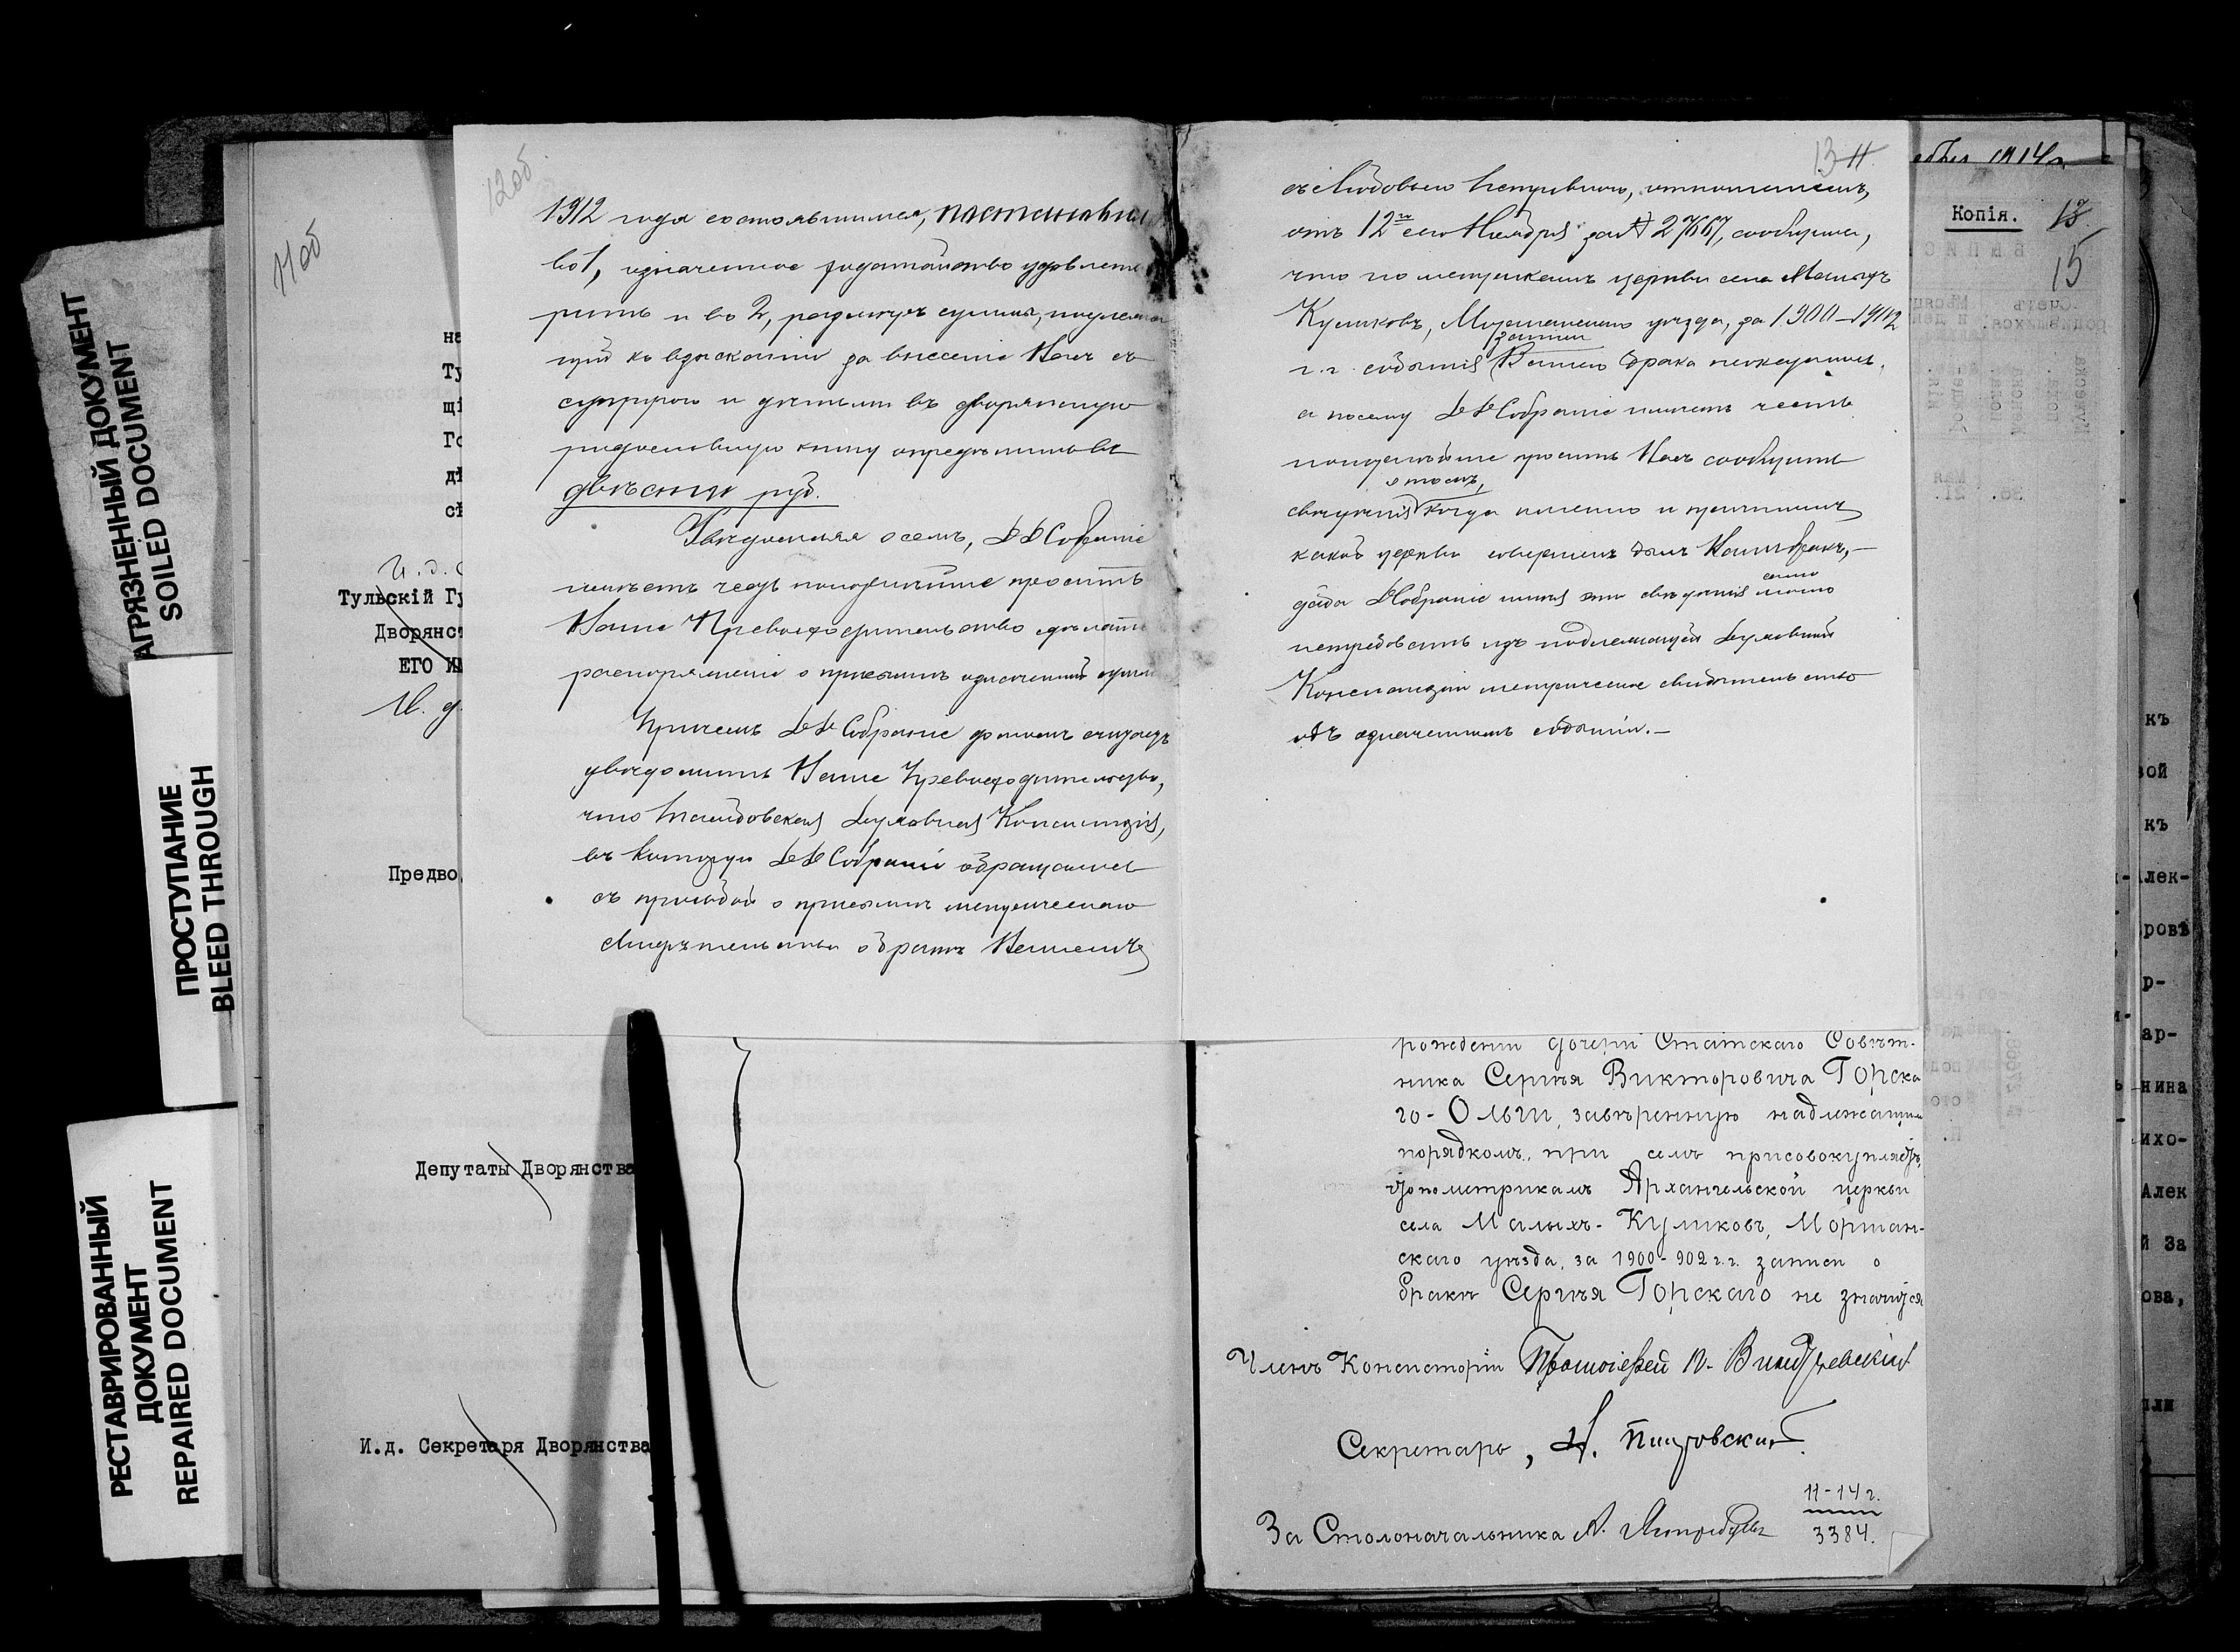 АГРЯЗНЕННЫЙ ДОКУМЕНТ
SOILED DOCUMENT
ПРОСТУПАНИЕ
BLEED THROUGH
РЕСТАВРИРОВАННЫЙ
ДОКУМЕНТ
REPAIRED DOCUMENT
11об
на
Ту
щі
Го
дѣ
сѣ
И. д.
Тульскій Гу
Дворянст
ЕГО ИМ
И. д.
Предво
Депутаты Дворянства
И.д. Секретаря Дворянства
12об
1912 года состоявшимся, постановил
во 1, означенное ходатайство удовлетв
рить и во 2, размѣръ суммы, подлежа
щій къ взысканію за внесеніе Васъ съ
супругою и дѣтьми въ дворянскую
родословную книгу опредѣлить въ
двѣсти руб.
Увѣдомляя о семъ, ДД Собраніе
имѣетъ честь покорнѣйше просить
Ваше Превосходительство сдѣлать
распоряженіе о присылкѣ означенной сумм
Причемъ ДД Собраніе долгомъ считаетъ
увѣдомить Ваше Превосходительство,
что Тамбовская Духовная Консисторія,
въ которую ДД Собраніе обращалось
съ просьбой о присылкѣ метрическаго
свидѣтельства о бракѣ Вашемъ
13 11.
съ Любовью Петровною, отношеніемъ,
отъ 12го сего Ноября за № 27667, сообщила,
что по метрикамъ церкви села Малыхъ
Куликовъ, Моршанскаго уѣзда, за 1900–1902
записи
г.г. событія Вашего брака не оказалось,
а посему ДД Собраніе имѣетъ честь
покорнѣйше просить Васъ сообщить
о томъ,
свѣдѣнія когда именно и причтомъ
какой церкви совершенъ былъ Вашъ бракъ,—
дабы Собраніе имѣя эти свѣдѣнія могло
само
истребовать изъ подлежащей Духовной
Консисторіи метрическое свидѣтельство
объ означенномъ событіи.—
рожденіи дочери Статскаго Совѣт-
ника Сергѣя Викторовича Горска
го - Ольги, завѣренную надлежащим
порядкомъ, при семъ присовокупляетъ,
что по метрикамъ Архангельской церкви
села Малыхъ-Куликовъ, Моршан-
скаго уѣзда, за 1900-902 г.г. записи о
бракѣ Сергѣя Горскаго не значится
Членъ Консисторіи Протоіерей
Секретарь,
За Столоначальника
11-14 г.
3384.
1914 г.
Копія.
15
къ
вой
къ
Алек-
ровѣ
р-
ар-
нина
ихо-
Алек
й За
ова,
или